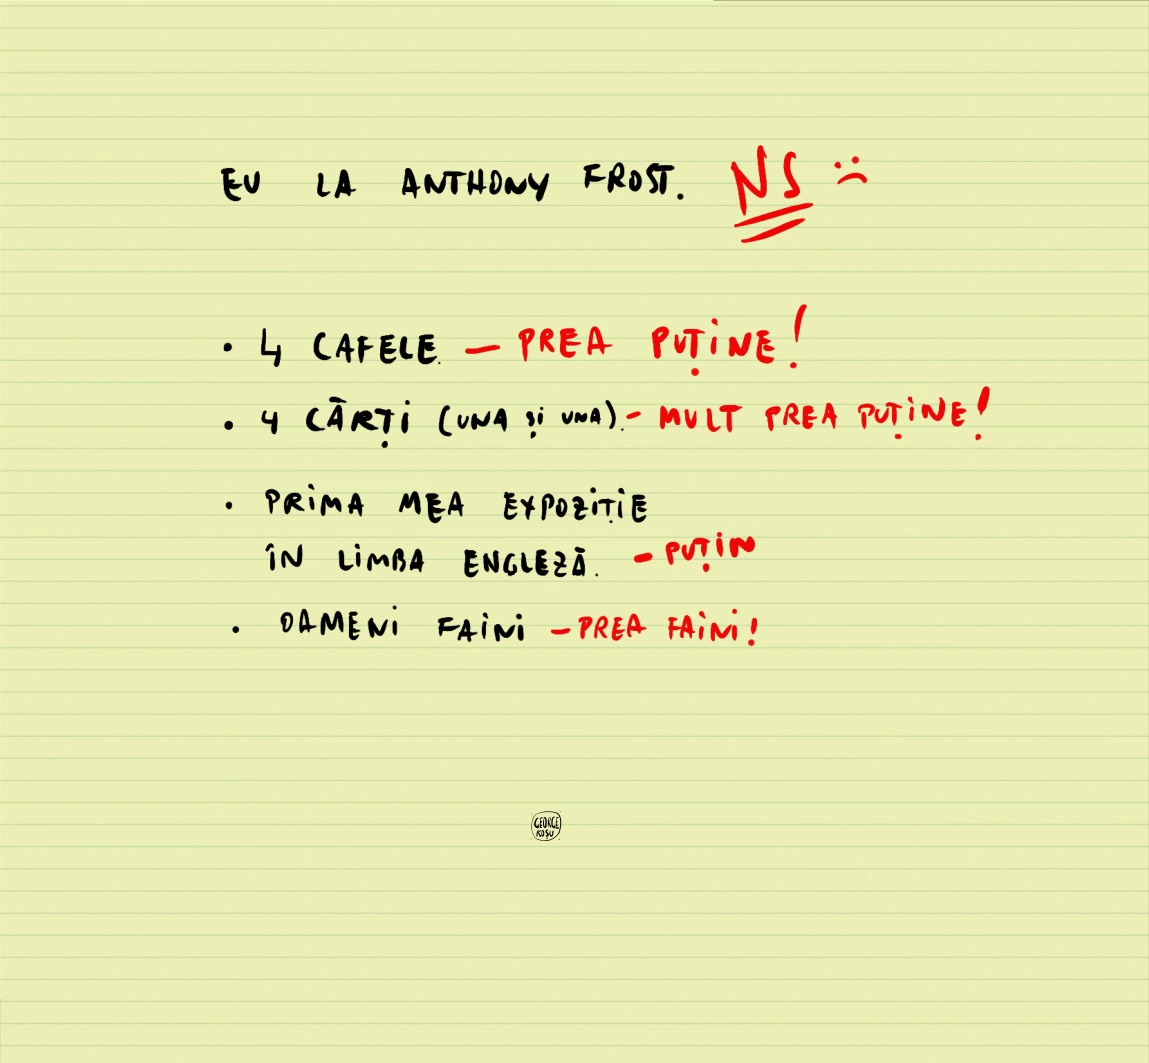 EU LA ANTHONY FROST. NS :(
• 4 CAFELE. – PREA PUȚINE!
• 4 CĂRȚI (UNA ȘI UNA). - MULT PREA PUȚINE!
• PRIMA MEA EXPOZIȚIE
ÎN LIMBA ENGLEZĂ. - PUȚIN
• OAMENI FAINI – PREA FAINI!
GEORGE
ROȘU